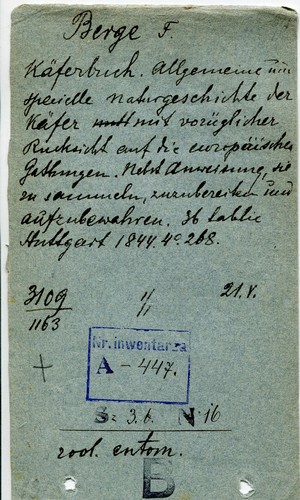 Berge F.
Käferbuch. Allgemeine und
specielle Naturgeschichte der
Käfer mit vorüglicher
Rücksicht auf die europäischen
Gattungen. Nebst Anweisung, sie
zu sammeln, zuzubereiten und
aufzubewahren. 36 tablic
Stuttgart 1844. 4º 268.
3109 " 21.V.
1163 "
Nr. inwentarza
A - 447.
S: 3.b. N: 16
zool. entom.
B